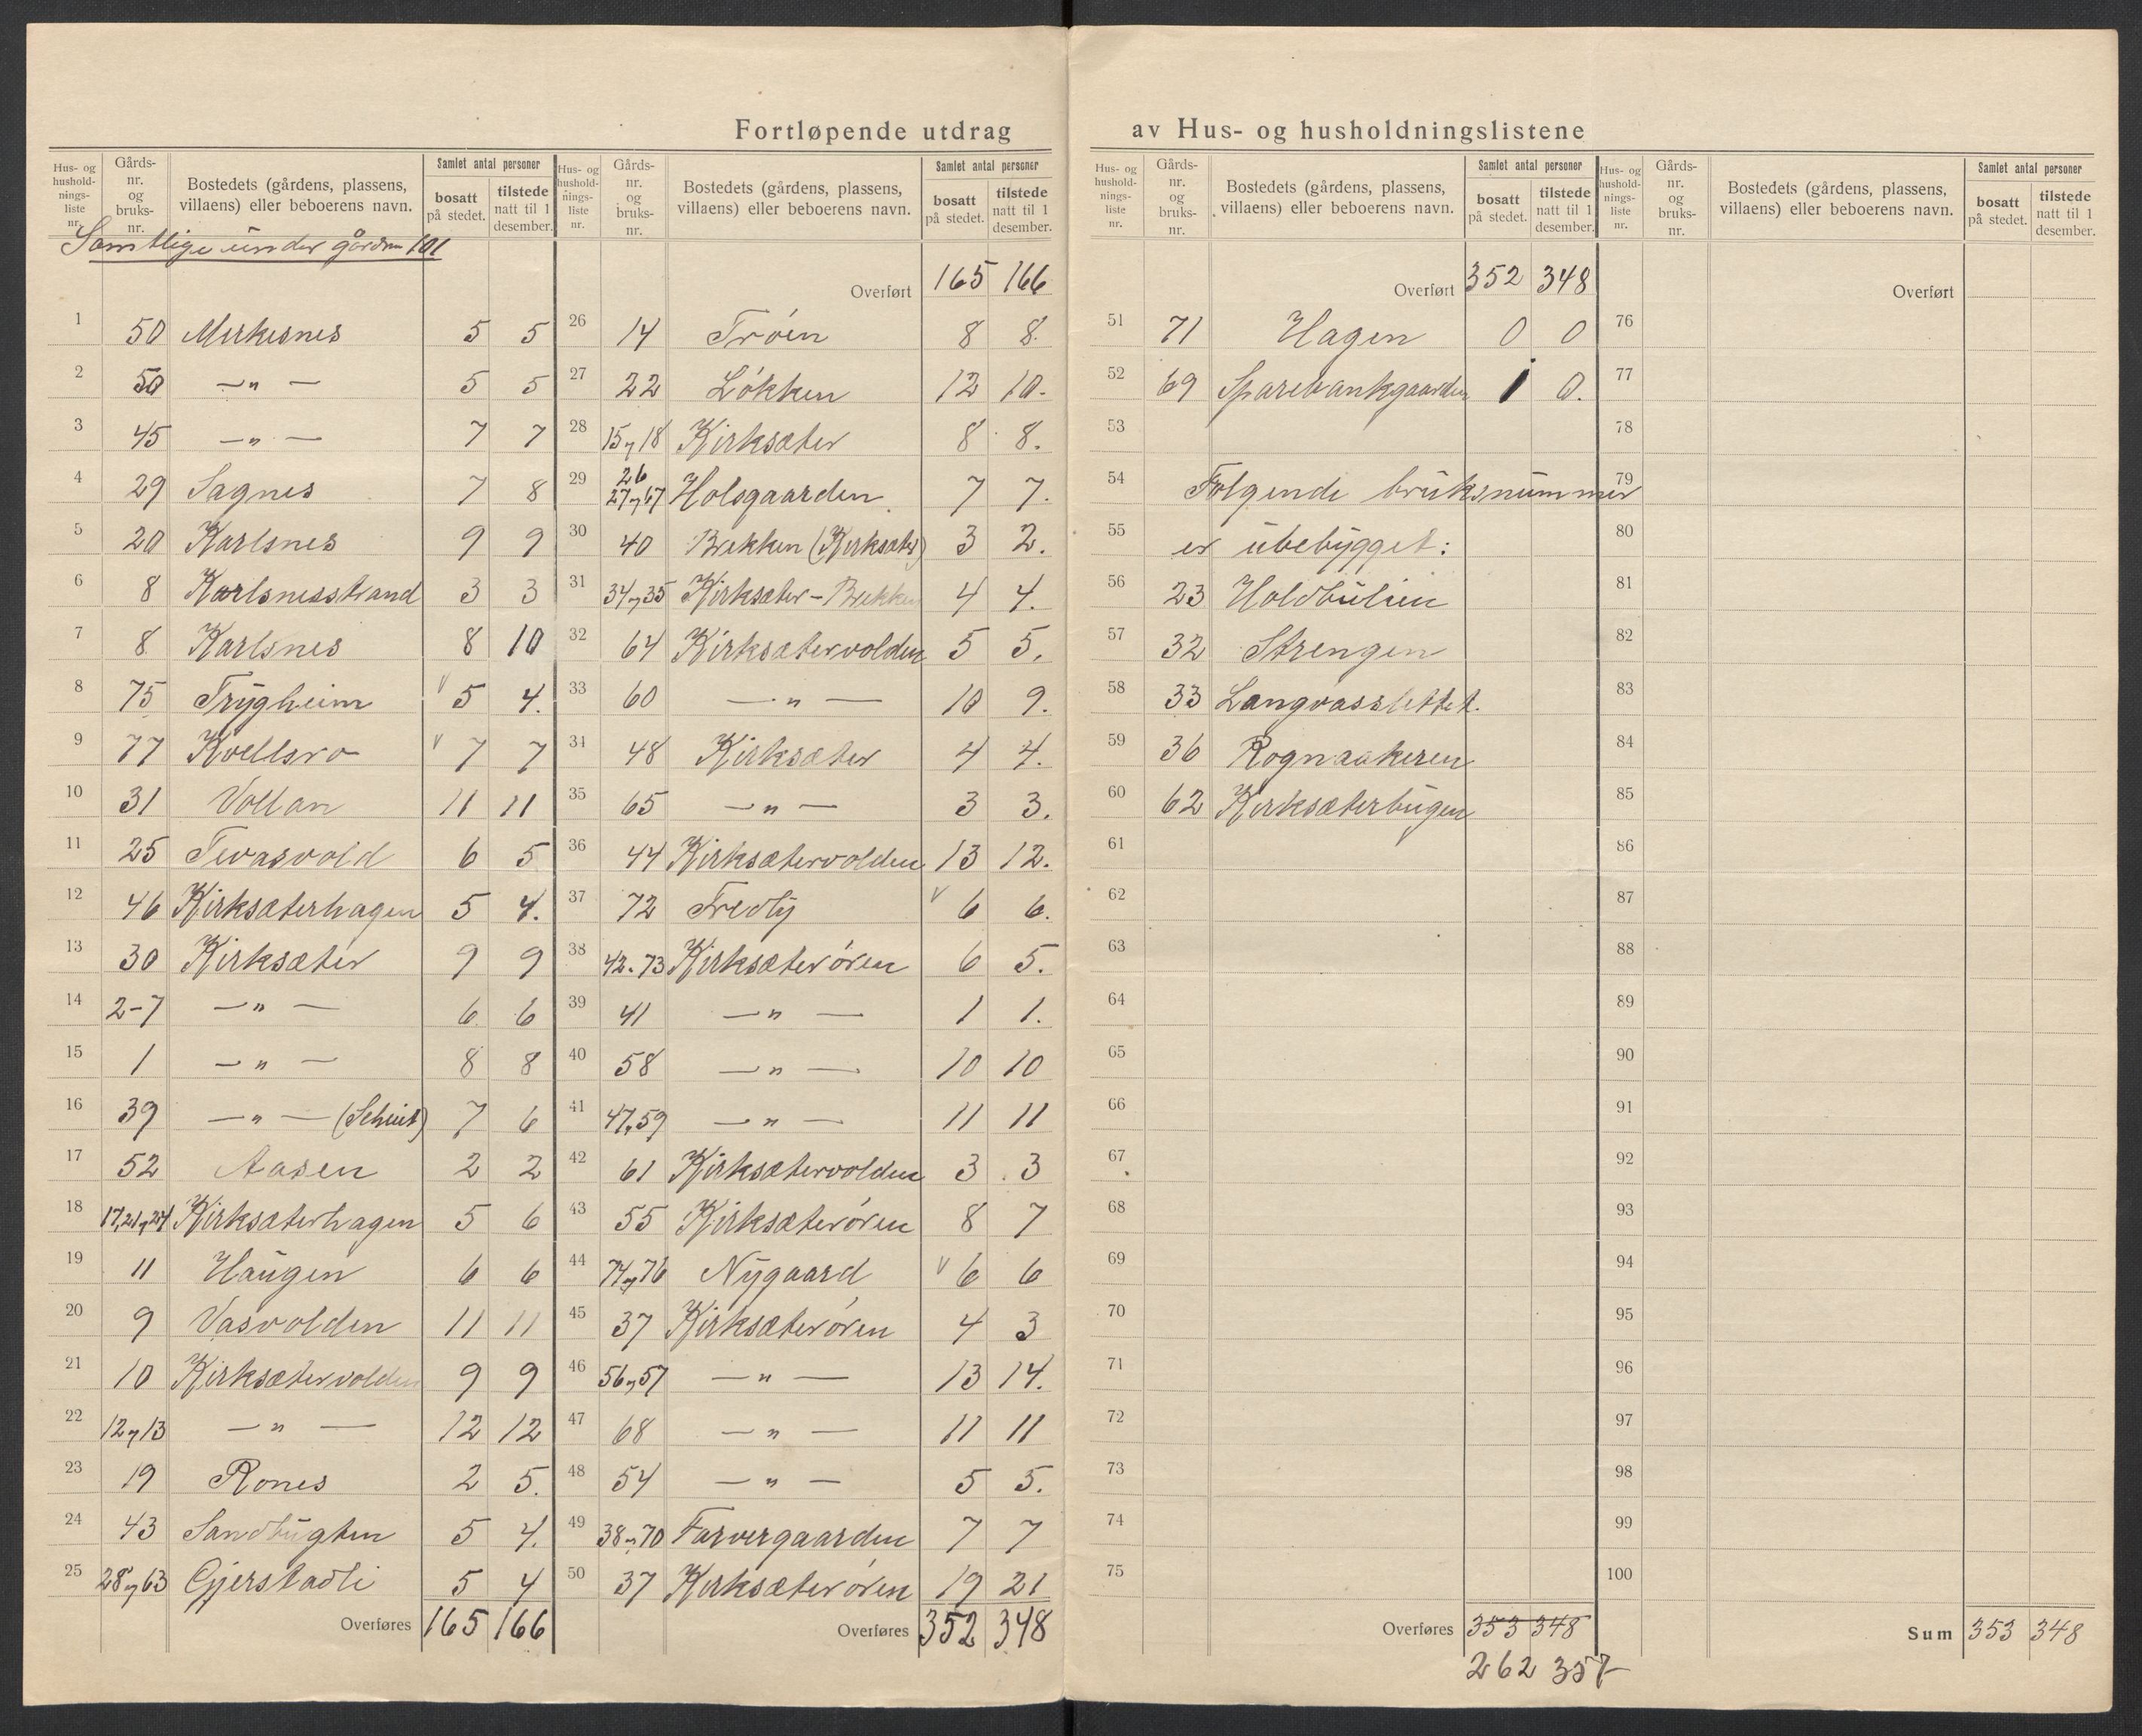 Fortløpende utdrag av Hus- og husholdningslistene
Hus- og hushold- nings- liste nr. Gårds- nr. og bruks- nr. Bostedets (gårdens, plassens, villaens) eller beboerens navn. Samlet antal personer bosatt på stedet. tilstede natt til 1 desember.
Samtlige under gårdsnr 101
1 50 Merkesnes 5 5
2 50 —„— 5 5
3 45 —„— 7 7
4 29 Sagnes 7 8
5 20 Karlsnes 9 9
6 8 Karlsnesstrand 3 3
7 8 Karlsnes 8 10
8 75 Trygheim V 5 4.
9 77 Kvellsro V 7 7
10 31 Vollan 11 11
11 25 Tevasvold 6 5
12 46 Kirksæterhagen 5 4.
13 30 Kirksæter 9 9
14 2-7 —„— 6 6
15 1 —„— 8 8
16 39 —„— 7 6
17 52 Aasen 2 2
18 17,21og24 Kirksæterhagen 5 6
19 11 Haugen 6 6
20 9 Vasvolden 11 11
21 10 Kirksætervolden 9 9
22 12og13 —„— 12 12
23 19 Rones 2 5.
24 43 Sandbugten 5 4.
25 28og63 Gjerstadli 5 4
Overføres 165 166
Hus- og hushold- nings- liste nr. Gårds- nr. og bruks- nr. Bostedets (gårdens, plassens, villaens) eller beboerens navn. Samlet antal personer bosatt på stedet. tilstede natt til 1 desember.
Overført 165 166
26 14 Trøen 8 8.
27 22 Løkken 12 10.
28 15og18 Kirksæter 8 8.
29 26 27og67 Holsgaarden 7 7.
30 40 Bekken (Kirksæter) 3 2.
31 34og35 Kirksæter-Bekken 4 4.
32 64 Kirksætervolden 5 5.
33 60 —„— 10 9.
34 48 Kirksæter 4 4.
35 65 —„— 3 3.
36 44 Kirksætervolden 13 12.
37 72 Fredly V 6 6.
38 42.73 Kirksæterøren 6 5.
39 41 —„— 1 1.
40 58 —„— 10 10
41 47,59 —„— 11 11
42 61 Kirksætervolden 3 3
43 55 Kirksæterøren 8 7
44 74og76 Nygaard V 6 6
45 37 Kirksæterøren 4 3
46 56og57 —„— 13 14.
47 68 —„— 11 11
48 54 —„— 5 5.
49 38og70 Farvergaarden 7 7
50 37 Kirksæterøren 19 21
Overføres 352 348
Hus- og hushold- nings- liste nr. Gårds- nr. og bruks- nr. Bostedets (gårdens, plassens, villaens) eller beboerens navn. Samlet antal personer bosatt på stedet. tilstede natt til 1 desember.
Overført 352 348
51 71 Hagen 0 0
52 69 Sparebankgaarden 1 0.
53
54 Følgende bruksnummer
55 er ubebygget:
56 23 Holdbulien
57 32 Strengen
58 33 Langvasslettet.
59 36 Rognaakeren
60 62 Kirksæterbugen
61
62
63
64
65
66
67
68
69
70
71
72
73
74
75
Overføres 353 348
262 357
Hus- og hushold- nings- liste nr. Gårds- nr. og bruks- nr. Bostedets (gårdens, plassens, villaens) eller beboerens navn. Samlet antal personer bosatt på stedet. tilstede natt til 1 desember.
Overført
76
77
78
79
80
81
82
83
84
85
86
87
88
89
90
91
92
93
94
95
96
97
98
99
100
Sum 353 348